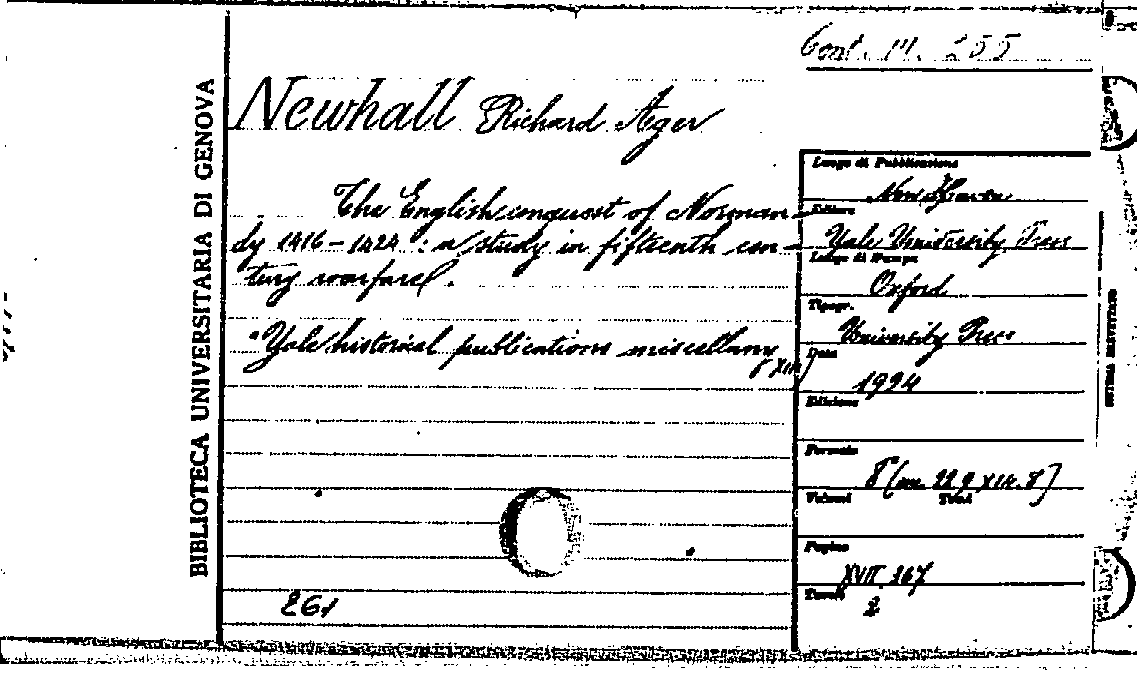 Cont. M. 255
BIBLIOTECA UNIVERSITARIA DI GENOVA
Newhall Richard Ager
The English conquest of Norman-
dy 1416-1424 : a study in fifteenth cen-
tury warfare.
"Yale historical publications miscellany
XIII
261
Luogo di Pubblicazione
New Haven
Editore
Yale University Press
Luogo di Stampa
Oxford
Tipogr.
University Press
Data
1924
Edizione
Formato
8° (cm. 22,9 x 14.8)
Volumi Tomi
Pagine
XVII. 367
Tavole
2